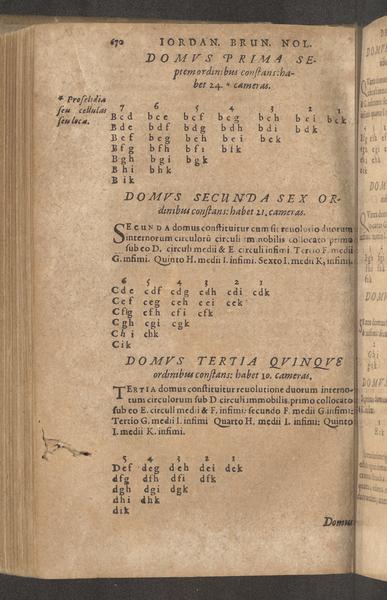 670 IORDAN. BRUN. NOL.
DOMVS PRIMA SE-
ptemordinibus constans: ha-
bet 24. * cameras.
* Proselidia
seu cellulas
seu loca.
7 6 5 4 3 2 1
Bcd bce bcf bcg bch bci bck
Bde bdf bdg bdh bdi bdk
Bef beg beh bei bek
Bfg bfh bfi bfk
Bgh bgi bgk
Bhi bhk
Bik
DOMVS SECUNDA SEX OR-
dinibus constans: habet 21. cameras.
SECUNDA domus constituitur cum sit reuolutio duorum
internorum circulorū circuli immobilis collocato primo
sub eo D. circuli medii & E circuli infimi. Tertio F. medii
G. infimi. Quinto H. medii I. infimi. Sexto I. medii K. infimi.
6 5 4 3 2 1
Cde cdf cdg cdh cdi cdk
Cef ceg ceh cei cek
Cfg cfh cfi cfk
Cgh cgi cgk
Chi chk
Cik
DOMVS TERTIA QVINQVE
ordinibus constans: habet 10. cameras.
TERTIA domus constituitur reuolutione duorum interno-
rum circulorum sub D circuli immobilis, primo collocato
sub eo E. circuli medii & F. infimi: secundo F. medii G infimi:
Tertio G. medii I. infimi Quarto H. medii I. infimi: Quinto
I. medii K. infimi.
5 4 3 2 1
Def deg deh dei dek
dfg dfh dfi dfk
dgh dgi dgk
dhi dhk
dik
Domus